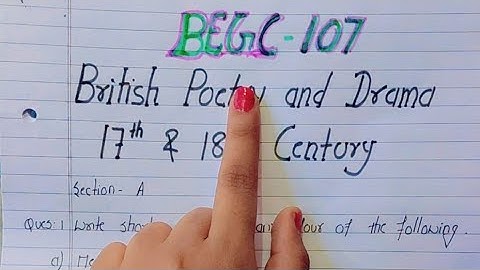 BEGC-107
British Poetry and Drama
17th & 18 Century
Section - A
Ques:1 Write of the following.
a)